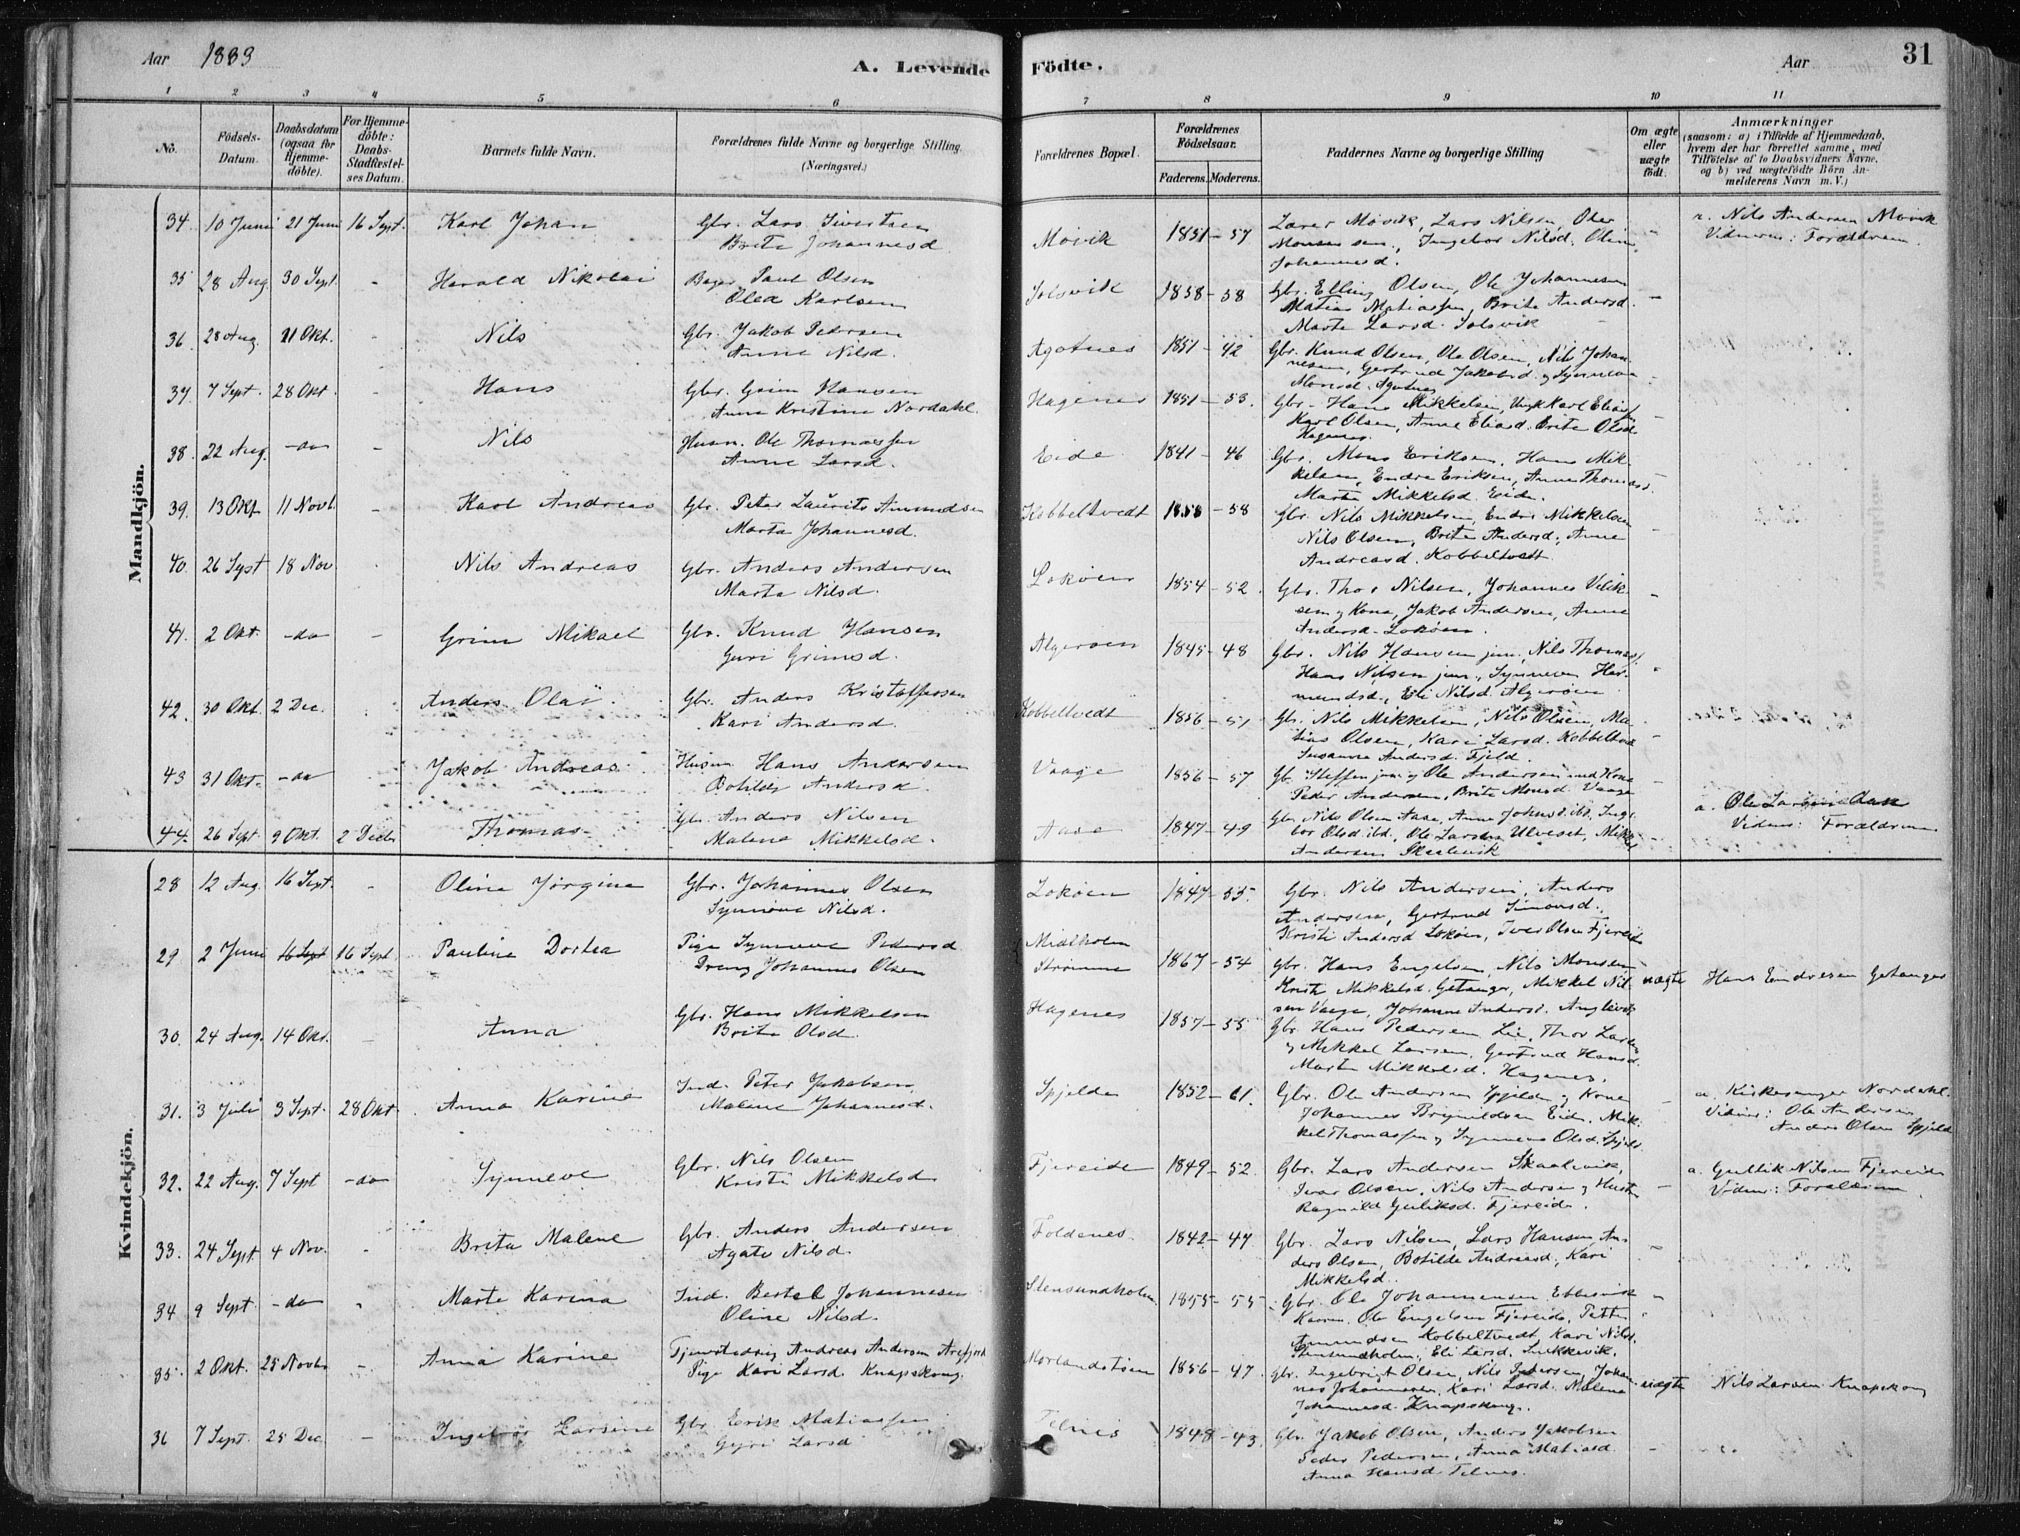 Aar 1883 A. Levende Födte. Aar 31
1 2 3 4 5 6 7 8 9 10 11
No.
Födsels-Datum.
Daabsdatum (ogsaa for Hjemme-döbte).
For Hjemme-döbte: Daabs-Stadfæstel-ses Datum.
Barnets fulde Navn.
Forældrenes fulde Navne og borgerlige Stilling (Næringsvei.)
Forældrenes Bopæl.
Forældrenes Födselsaar.
Faderens. Moderens.
Faddernes Navne og borgerlige Stilling
Om ægte eller uægte födt.
Anmærkninger
(saasom: a) i Tilfælde af Hjemmedaab, hvem der har forrettet samme, med Tilföielse af to Daabsvidners Navne, og b) ved uægtefödte Börn An-melderens Navn m. V.)
Mandkjön.
34. 10 Juni 21 Juni 16 Sept. Karl Johan Gbr. Lars Sivertsen Møvik 1851-57 Lærer Møvik, Lars Nilsen, Ole Nils Andersen Møvik
Brita Johannesd. Monsen sen., Ingebor Nilsd. Oline Vidner: Forældrene.
Johannesd.
35 28 Aug. 30 Sept. - Harald Nikolai Bager Paul Olsen Solsvik 1858-58 Gbr. Elling Olsen, Ole Johannesen
Olea Karlsen Matias Matiassen, Brita Andersd.
Marta Larsd. Solsvik
36. 28 Aug. 21 Okt. - Nils Gbr. Jakob Pedersen Agotnes 1851-42 Gbr. Knud Olsen, Ole Olsen, Nils Johan-
Anne Nilsd. nesen, Gertrud Jakobsd. og Synneva
Monsd. Agotnes
37. 7 Sept. 28 Okt. - Hans Gbr. Grim Hansen Hagenes 1851-53. Gbr. Hans Mikkelsen, Ungk Karl Eliassen
Anna Kristine Nordahl. Karl Olsen, Anne Eliasd. Brita Olsd.
Hagenes.
38. 22 Aug. -do - Nils Husm. Ole Thomassen Eide 1841-46 Gbr. Mons Eriksen, Hans Mik-
Anne Larsd. kelsen, Endre Eriksen, Anne Thomasd.
Marta Mikkelsd. Eide.
39. 13 Okt. 11 Novb. - Karl Andreas Gbr. Peter Laurits Amundsen Kobbeltvedt 1858-58 Gbr. Nils Mikkelsen, Endre Mikkelsen
Marta Johannesd. Nils Olsen, Brita Andersd., Anne
Andreasd. Kobbeltvedt.
40. 26 Sept 18 Nov Nils Andreas Gbr. Anders Andersen Lokøen 1854-52. Gbr. Thor Nilsen, Johannes Vilik-
Marta Nilsd. sen og Kone, Jakob Andersen, Anne
Andersd. Lokøen.
41. 2 Okt. -do - Grim Mikael Gbr. Knud Hansen Algerøen 1845-48 Gbr. Nils Hansen jun., Nils Thomas.
Guri Grimsd. Hans Nilsen jun., Synneva Her-
mundsd., Eli Nilsd. Algerøen
42. 30 Okt. 2 Dec. Anders Olai Gbr. Anders Kristoffersen Kobbeltvedt 1856-51 Gbr. Nils Mikkelsen, Nils Olsen, Ma-
Kari Andersd. tias Olsen, Kari Larsd. Kobbeltvedt
Susanna Andersd. Fjeld.
43 31 Okt. -do Jakob Andreas Husm. Hans Andersen Vaage 1856-57 Gbr. Steffen jun. og Ole Andersen med Kone
Botilde Andersd. Peder Andersen, Brita Monsd. Vaage
44. 26 Sept 9 Okt. 2 Decbr Thomas Gbr. Anders Nilsen Aase 1847-49 Gbr. Nils Olsen Aase, Anne Johnsd. ibd., Inge- a. Ole Larsen Aase
Malene Mikkelsd. bor Olsd. ibd., Ole Larsen Ulveset, Mikkel Vidner: Forældrene
Andersen Skaalevik
Kvindekjön.
28 12 Aug. 16 Sept. - Oline Jørgine Gbr. Johannes Olsen Lokøen 1847-55. Gbr. Nils Andersen, Anders
Synnøve Nilsd. Andersen, Gertrud Simonsd.
Kristi Andersd Lokøen, Iver Olsen Fjereide
29 2 Juni 16 Sept 16 Sept. Pauline Dortea Pige Synneve Pedersd Midtholm
Dreng Johannes Olsen Strømme 1867-54 Gbr. Hans Engelsen, Nils Monsen, uægte Hans Endresen Getanger
Kristi Mikkelsd. Getanger, Mikkel Nil-
sen Vaage, Johanne Andersd. Anglevik
30. 24 Aug. 14 Okt. - Anna Gbr. Hans Mikkelsen Hagenes 1857-55 Gbr. Hans Pedersen Lie, Thor Larsen
Brita Olsd. og Mikkel Larsen, Gertrud Hansd.
Marta Mikkelsd. Hagenes.
31. 3 Juli 3 Sept. 28 Okt. Anna Karine Ind. Peter Jakobsen Spjelden 1852-61. Gbr. Ole Andersen Spjelden og Kone - a. Kirkesanger Nordahl.
Malene Johannesd. Johannes Brynildsen Eide, Mik- Vidner: Ole Andersen
kel Thomassen og Synneva Olsd. Spjeld. Anders Olsen Spjeld
32. 22 Aug. 7 Sept -do Synneve Gbr. Nils Olsen Fjereide 1849-52. Gbr. Lars Andersen Skaalevik, a. Gullik Nilsen Fjereide
Kristi Mikkelsd Ivar Olsen, Nils Andersen og Hustru Vidner: Forældrene.
Ragnild Guliksd. Fjereide.
33. 24 Sept 4 Nov. - Brita Malene Gbr. Anders Andersen Foldenes. 1842-47 Gbr. Lars Nilsen, Lars Hansen, An-
Agate Nilsd. ders Olsen, Botilde Andreasd., Kari
Mikkelsd.
34 9 Sept. -do Marta Karina Ind. Bertel Johannesen Stensundholm 1855-55 Gbr. Ole Johannesen Ebbesvik
Oline Nilsd. Ole Engelsen Fjereide, Petter
Amundsen Kobbeltvedt, Kari Nilsd.
Stensundholm, Eli Larsd. Sulkkevik.
35. 2 Okt. 25 Novbr - Anna Karine Tjenestedreng Andreas Andersen Arefjord Morlandstøen 1856-47. Gbr. Ingebrigt Olsen, Nils Pedersen, Johan- uægte Nils Larsen Knapskog
Pige Kari Larsd. Knapskog. nes Johannesen, Kari Larsd. Malena
Johannesd. Knapskog.
36 7 Sept. 25 Dec. - Ingebor Larsine Gbr. Erik Matiassen Telnes 1848-43. Gbr. Jakob Olsen, Anders Jakobsen -
Guri Larsd Peder Pedersen, Anna Matiasd.
Anna Hansd. Telnes.